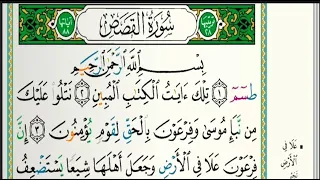 سُورَةُ القَصَصِ
بِسْمِ ٱللَّهِ ٱلرَّحْمَٰنِ ٱلرَّحِيمِ
طسٓمٓ ١ تِلْكَ ءَايَٰتُ ٱلْكِتَٰبِ ٱلْمُبِينِ ٢ نَتْلُوا۟ عَلَيْكَ
مِن نَّبَإِ مُوسَىٰ وَفِرْعَوْنَ بِٱلْحَقِّ لِقَوْمٍ يُؤْمِنُونَ ٣ إِنَّ
فِرْعَوْنَ عَلَا فِى ٱلْأَرْضِ وَجَعَلَ أَهْلَهَا شِيَعًا يَسْتَضْعِفُ
عَلَا فِي
الْأَرْضِ